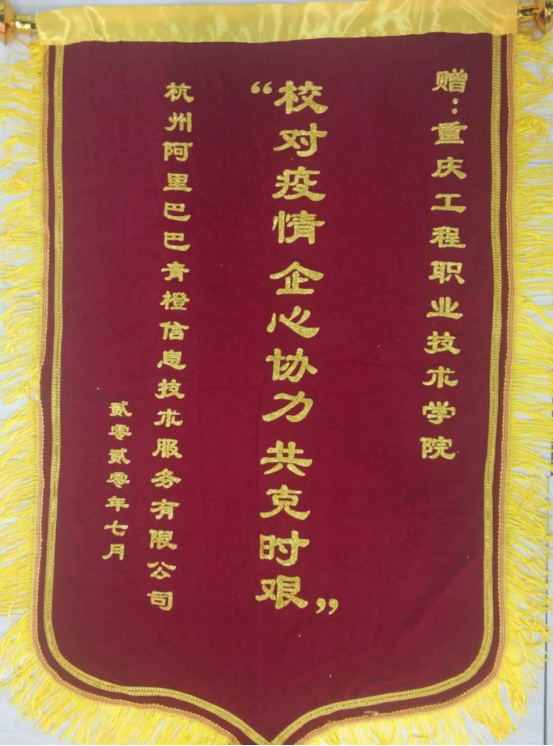 赠：重庆工程职业技术学院
“校对疫情 企心协力 共克时艰”
杭州阿里巴巴青橙信息技术服务有限公司
贰零贰零年七月